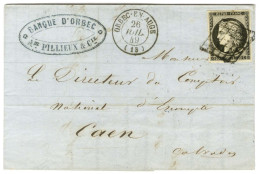 BANQUE D'ORBEC
Am PILLIEUX & Cie
ORBEC-EN-AUGE
26
JUIL
49
(13)
Monsieur
Le Directeur du Comptoir
National d'Escompte
Caen
Calvados